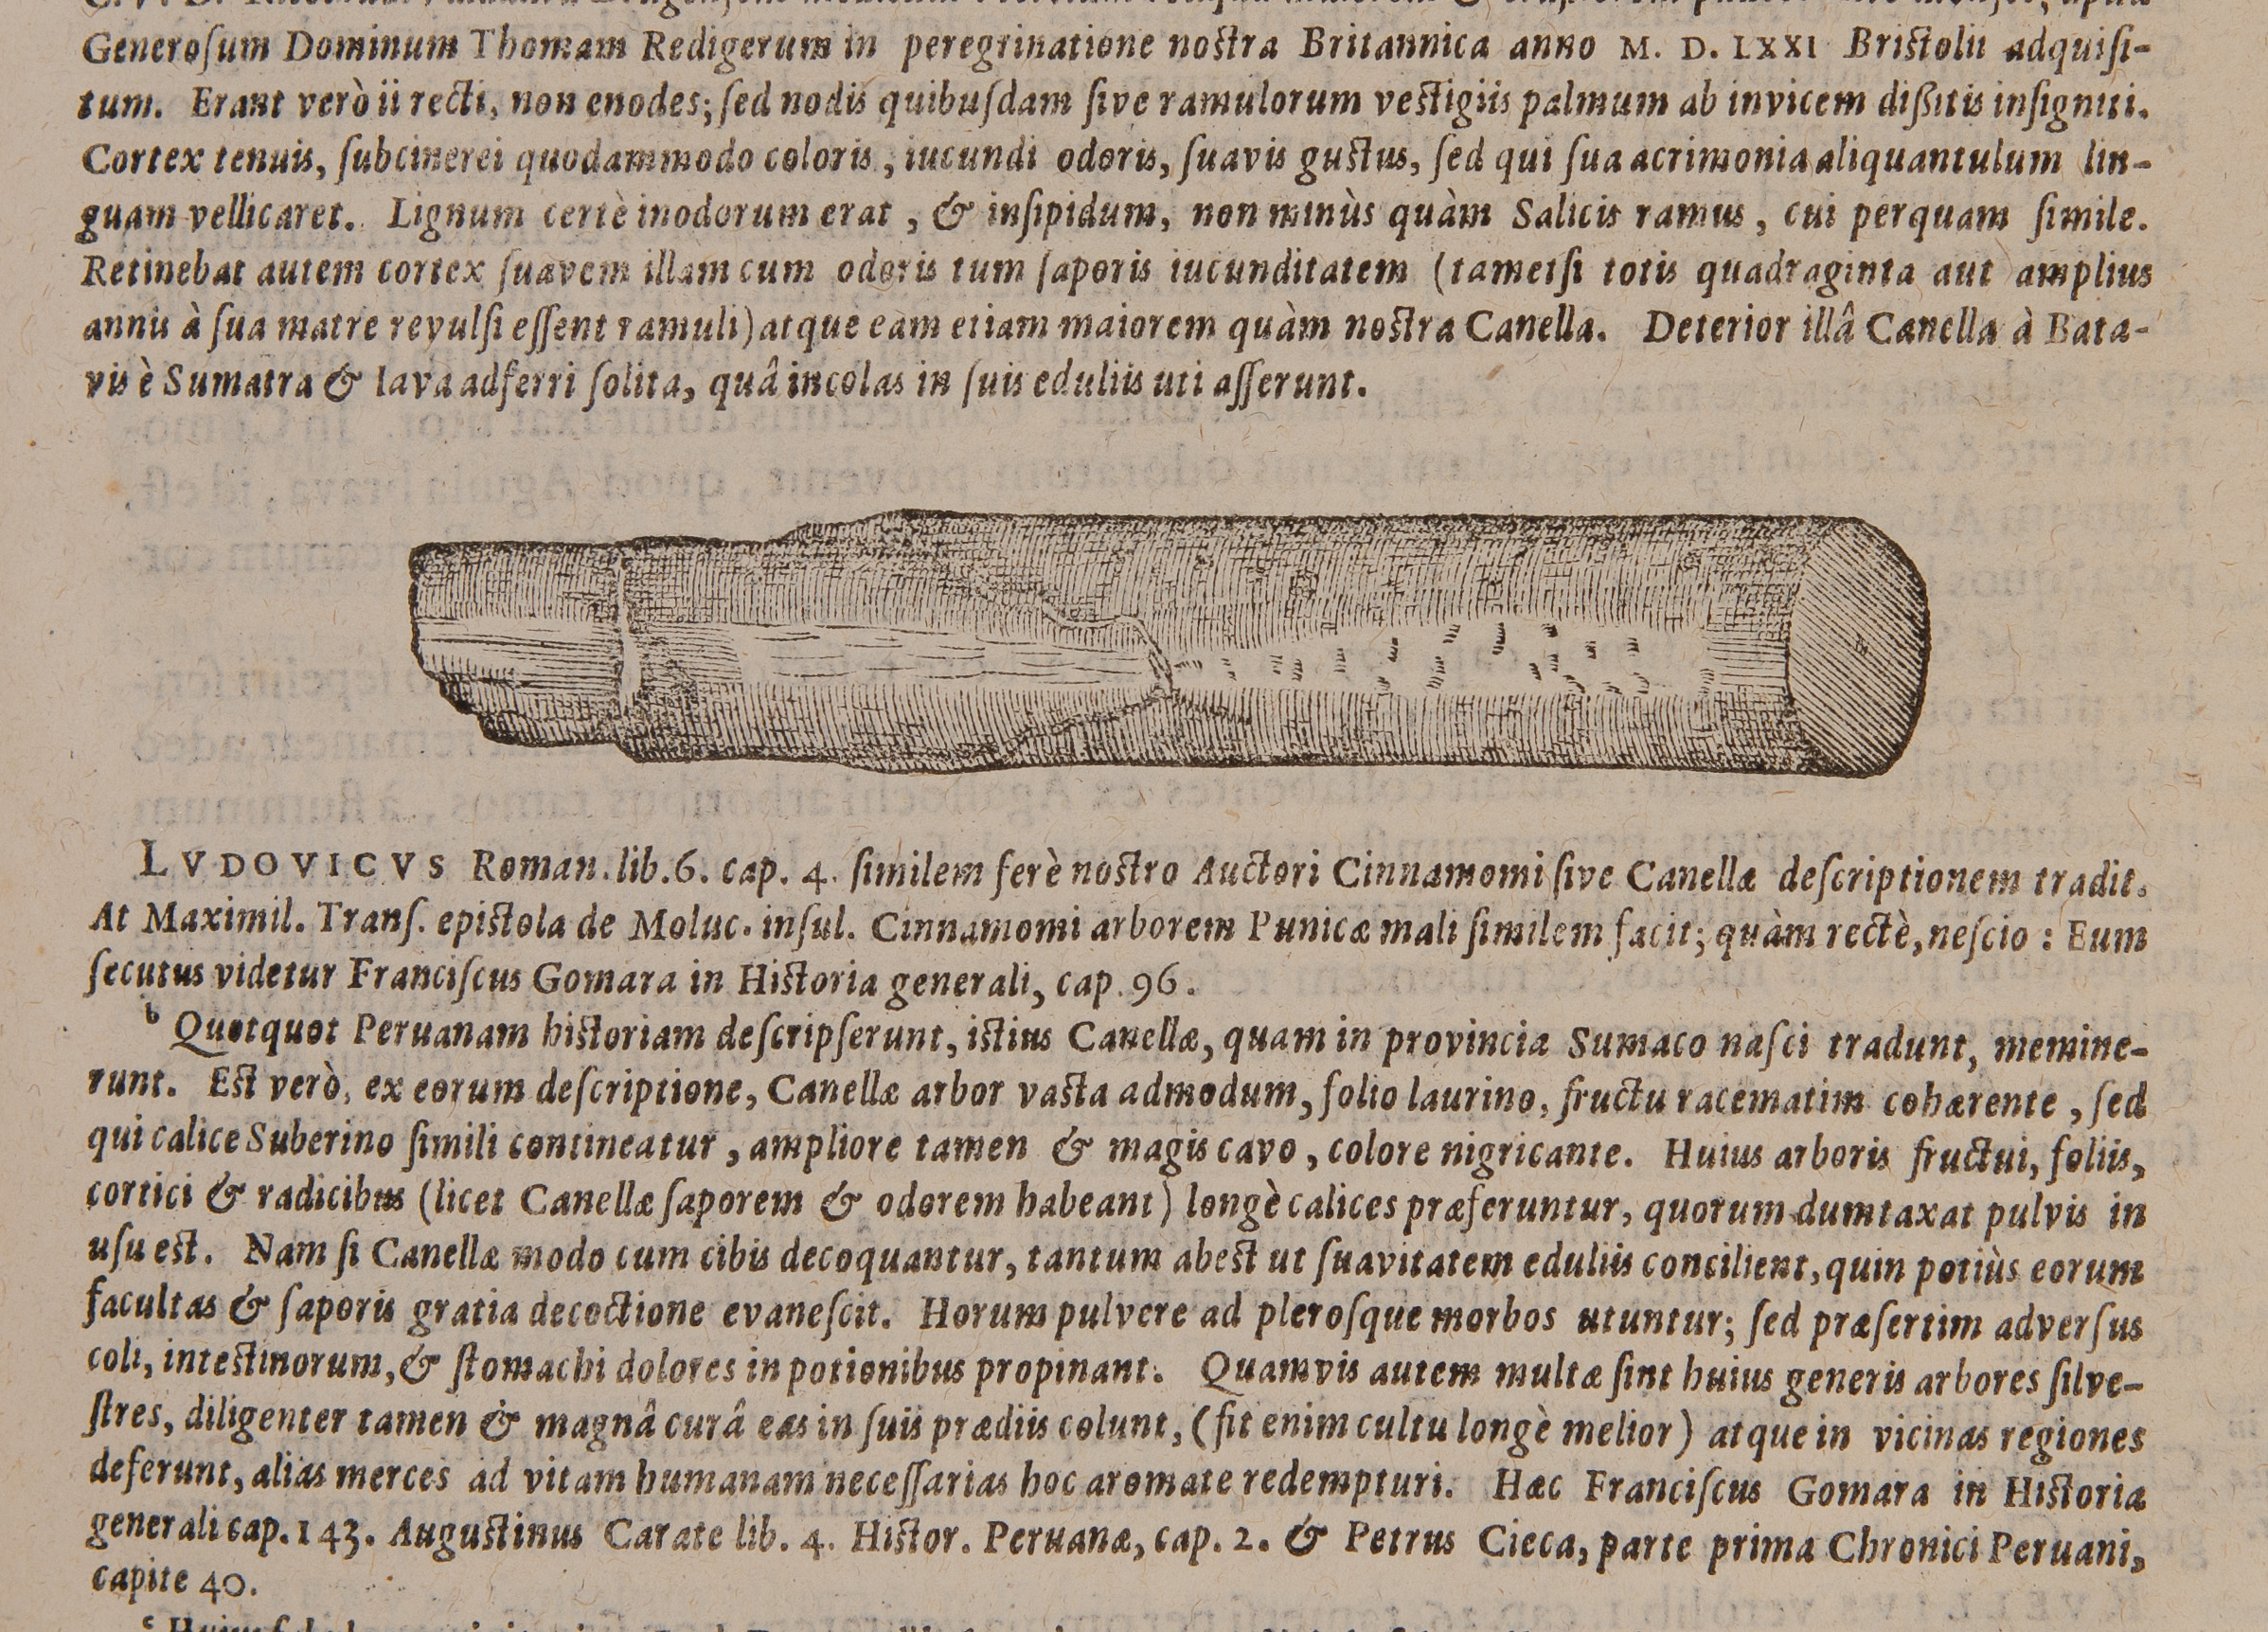 Generoſum Dominum Thomam Redigerum in peregrinatione noſtra Britannica anno M. D. LXXI Briſtolii adquiſi-
tum. Erant verò ii recti, non enodes; ſed nodis quibuſdam ſive ramulorum veſtigiis palmum ab invicem diſſitis inſigniti.
Cortex tenuis, ſubcinerei quodammodo coloris, iucundi odoris, ſuavis guſtus, ſed qui ſua acrimonia aliquantulum lin-
guam vellicaret. Lignum certè inodorum erat, & inſipidum, non minùs quàm Salicis ramus, cui perquam ſimile.
Retinebat autem cortex ſuavem illam cum odoris tum ſaporis iucunditatem (tametſi totis quadraginta aut amplius
annis à ſua matre revulſi eſſent ramuli) atque eam etiam maiorem quàm noſtra Canella. Deterior illâ Canella à Bata-
vis è Sumatra & Iava adferri ſolita, quâ incolas in ſuis eduliis uti aſſerunt.
LVDOVICVS Roman. lib. 6. cap. 4. ſimilem ferè noſtro Auctori Cinnamomi ſive Canellæ deſcriptionem tradit.
At Maximil. Tranſ. epiſtola de Moluc. inſul. Cinnamomi arborem Punicæ mali ſimilem facit; quàm rectè, neſcio: Eum
ſecutus videtur Franciſcus Gomara in Hiſtoria generali, cap. 96.
b Quotquot Peruanam hiſtoriam deſcripſerunt, iſtius Canellæ, quam in provincia Sumaco naſci tradunt, memine-
runt. Eſt verò, ex eorum deſcriptione, Canellæ arbor vaſta admodum, folio laurino, fructu racematim cohærente, ſed
qui calice Suberino ſimili contineatur, ampliore tamen & magis cavo, colore nigricante. Huius arboris fructui, foliis,
cortici & radicibus (licet Canellæ ſaporem & odorem habeant) longè calices præferuntur, quorum dumtaxat pulvis in
uſu eſt. Nam ſi Canellæ modo cum cibis decoquantur, tantum abeſt ut ſuavitatem eduliis concilient, quin potiùs eorum
facultas & ſaporis gratia decoctione evaneſcit. Horum pulvere ad pleroſque morbos utuntur; ſed præſertim adverſus
coli, inteſtinorum, & ſtomachi dolores in potionibus propinant. Quamvis autem multæ ſint huius generis arbores ſilve-
ſtres, diligenter tamen & magnâ curâ eas in ſuis prædiis colunt, (fit enim cultu longè melior) atque in vicinas regiones
deferunt, alias merces ad vitam humanam neceſſarias hoc aromate redempturi. Hæc Franciſcus Gomara in Hiſtoria
generali cap. 143. Auguſtinus Carate lib. 4. Hiſtor. Peruanæ, cap. 2. & Petrus Cieca, parte prima Chronici Peruani,
capite 40.